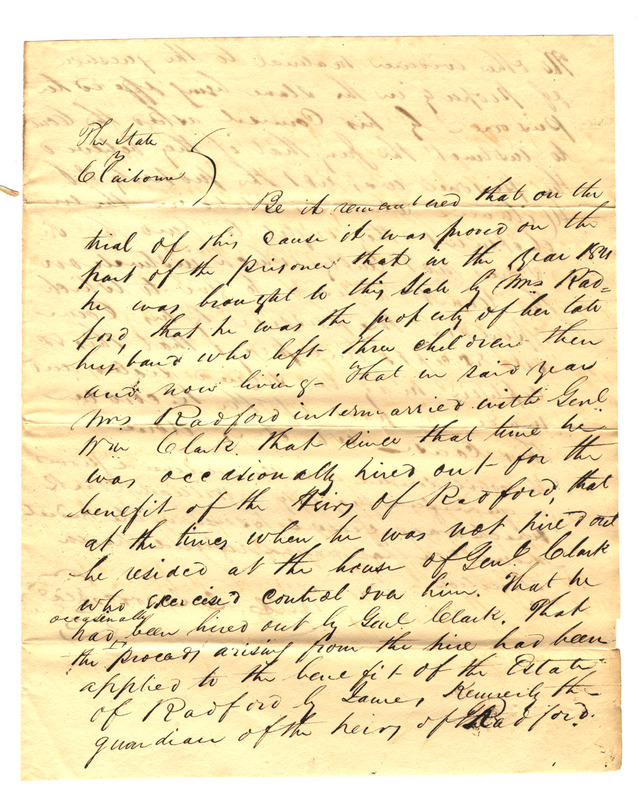 The State
vs
Claiborne
Be it remembered that on the
trial of this cause it was proved on the
part of the prisoner that in the year 1821
he was brought to this State by Mrs Rad=
ford, that he was the property of her late
husband who left three children then
and now living - That in said year
Mrs Radford intermarried with Genl.
Wm Clark. that since that time he
was occasionally hired out for the
benefit of the Heirs of Radford, that
at the times when he was not hired out
he resided at the house of Genl. Clark
who exercised control over him. That he
occasionally
had been hired out by Genl Clark. That
the proceeds arising from the hire had been
applied to the benefit of the Estate
of Radford by James Kennerly the
guardian of the heirs of Radford.